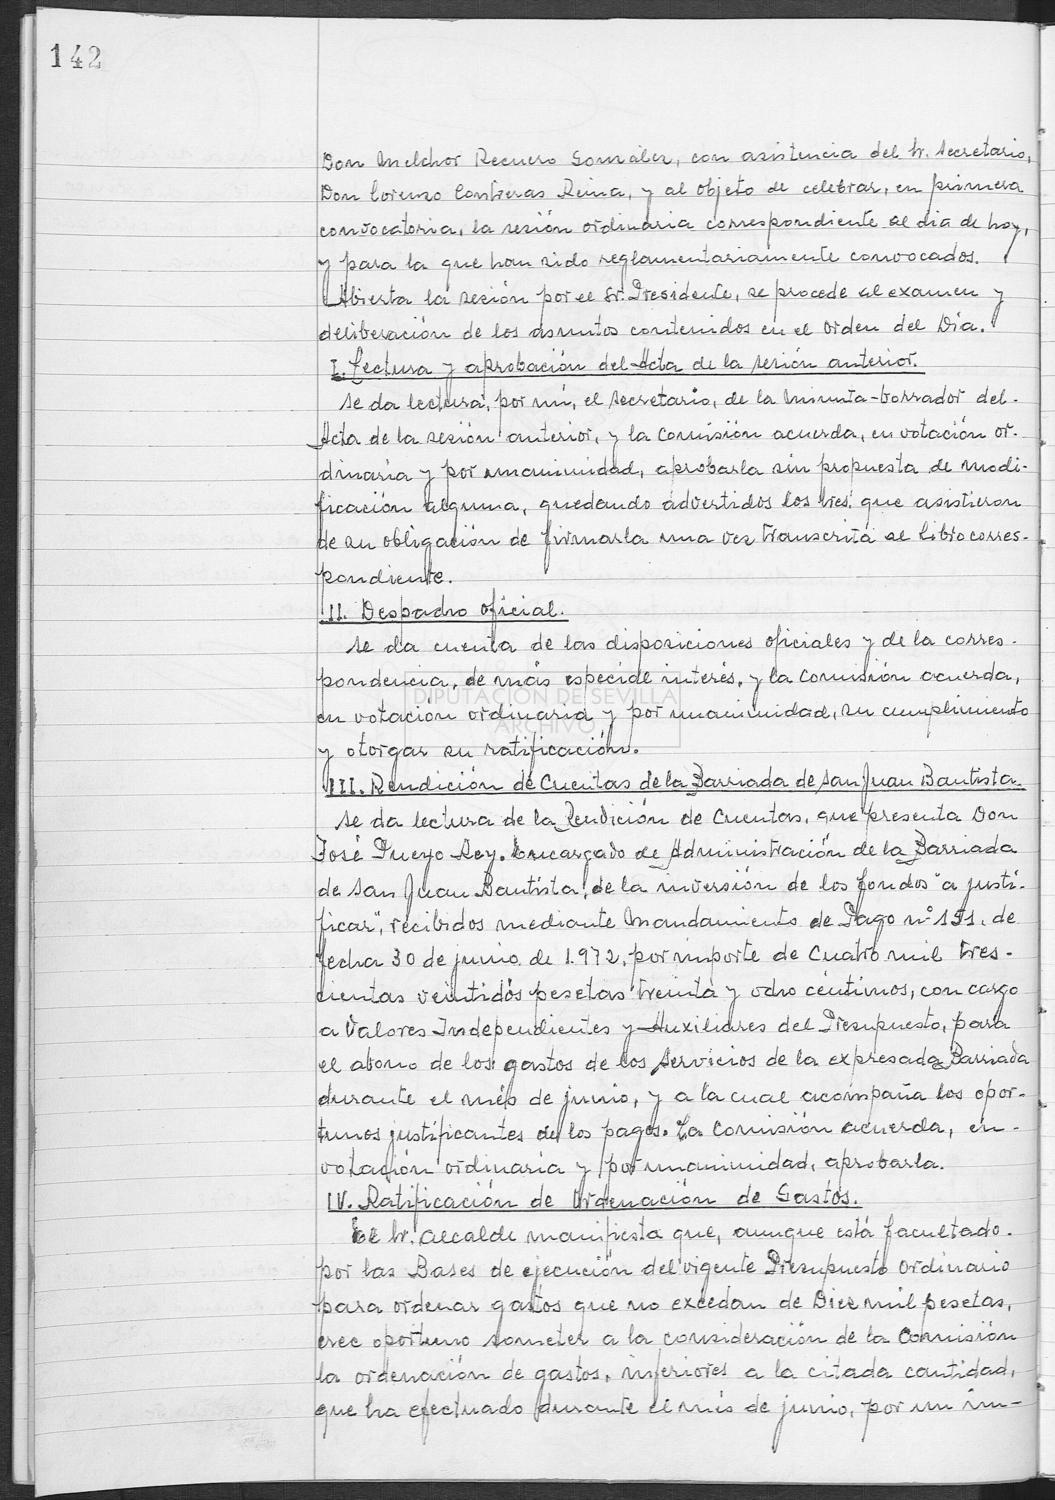 142
Don Melchor Recuero González, con asistencia del Sr. Secretario,
Don Lorenzo Contreras Reina, y al objeto de celebrar, en primera
convocatoria, la sesión ordinaria correspondiente al dia de hoy,
y para la que han sido reglamentariamente convocados.
Abierta la sesión por el Sr. Presidente, se procede al examen y
deliberación de los asuntos contenidos en el Orden del Día.
I. Lectura y aprobación del Acta de la sesión anterior.
Se da lectura, por mí, el Secretario, de la Minuta-borrador del
Acta de la sesión anterior, y la Comisión acuerda, en votación or-
dinaria y por unanimidad, aprobarla sin propuesta de modi-
ficación alguna, quedando advertidos los Sres. que asistieron
de su obligación de firmarla una vez transcrita al libro corres-
pondiente.
II. Despacho oficial.
Se da cuenta de las disposiciones oficiales y de la corres-
pondencia, de más especial interés, y la Comisión acuerda,
en votación ordinaria y por unanimidad, su cumplimiento
y otorgar su ratificación.
DIPUTACIÓN DE SEVILLA
ARCHIVO
III. Rendición de Cuentas de la Barriada de San Juan Bautista.
Se da lectura de la Rendición de Cuentas, que presenta Don
José Pueyo Rey. Encargado de Administración de la Barriada
de San Juan Bautista, de la inversión de los fondos "a justi-
ficar", recibidos mediante Mandamiento de Pago nº 151, de
fecha 30 de junio de 1.972, por importe de Cuatro mil tres-
cientas veintidós pesetas treinta y ocho céntimos, con cargo
a Valores Independientes y Auxiliares del Presupuesto, para
el abono de los gastos de los Servicios de la expresada Barriada
durante el més de junio, y a la cual acompaña los opor-
tunos justificantes de los pagos. La Comisión acuerda, en
votación ordinaria y por unanimidad, aprobarla.
IV. Ratificación de Ordenación de Gastos.
El Sr. Alcalde manifiesta que, aunque está facultado
por las Bases de ejecución del vigente Presupuesto Ordinario
para ordenar gastos que no excedan de Diez mil pesetas,
cree oportuno someter a la consideración de la Comisión
la ordenación de gastos, inferiores a la citada cantidad,
que ha efectuado durante el més de junio, por un im-